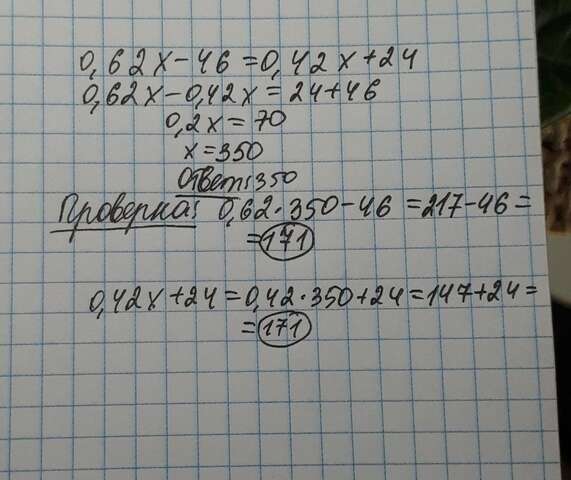 0,62x-46=0,42x+24
0,62x-0,42x=24+46
0,2x=70
x=350
Ответ:350
Проверка: 0,62·350-46=217-46=
=171
0,42x+24=0,42·350+24=147+24=
=171